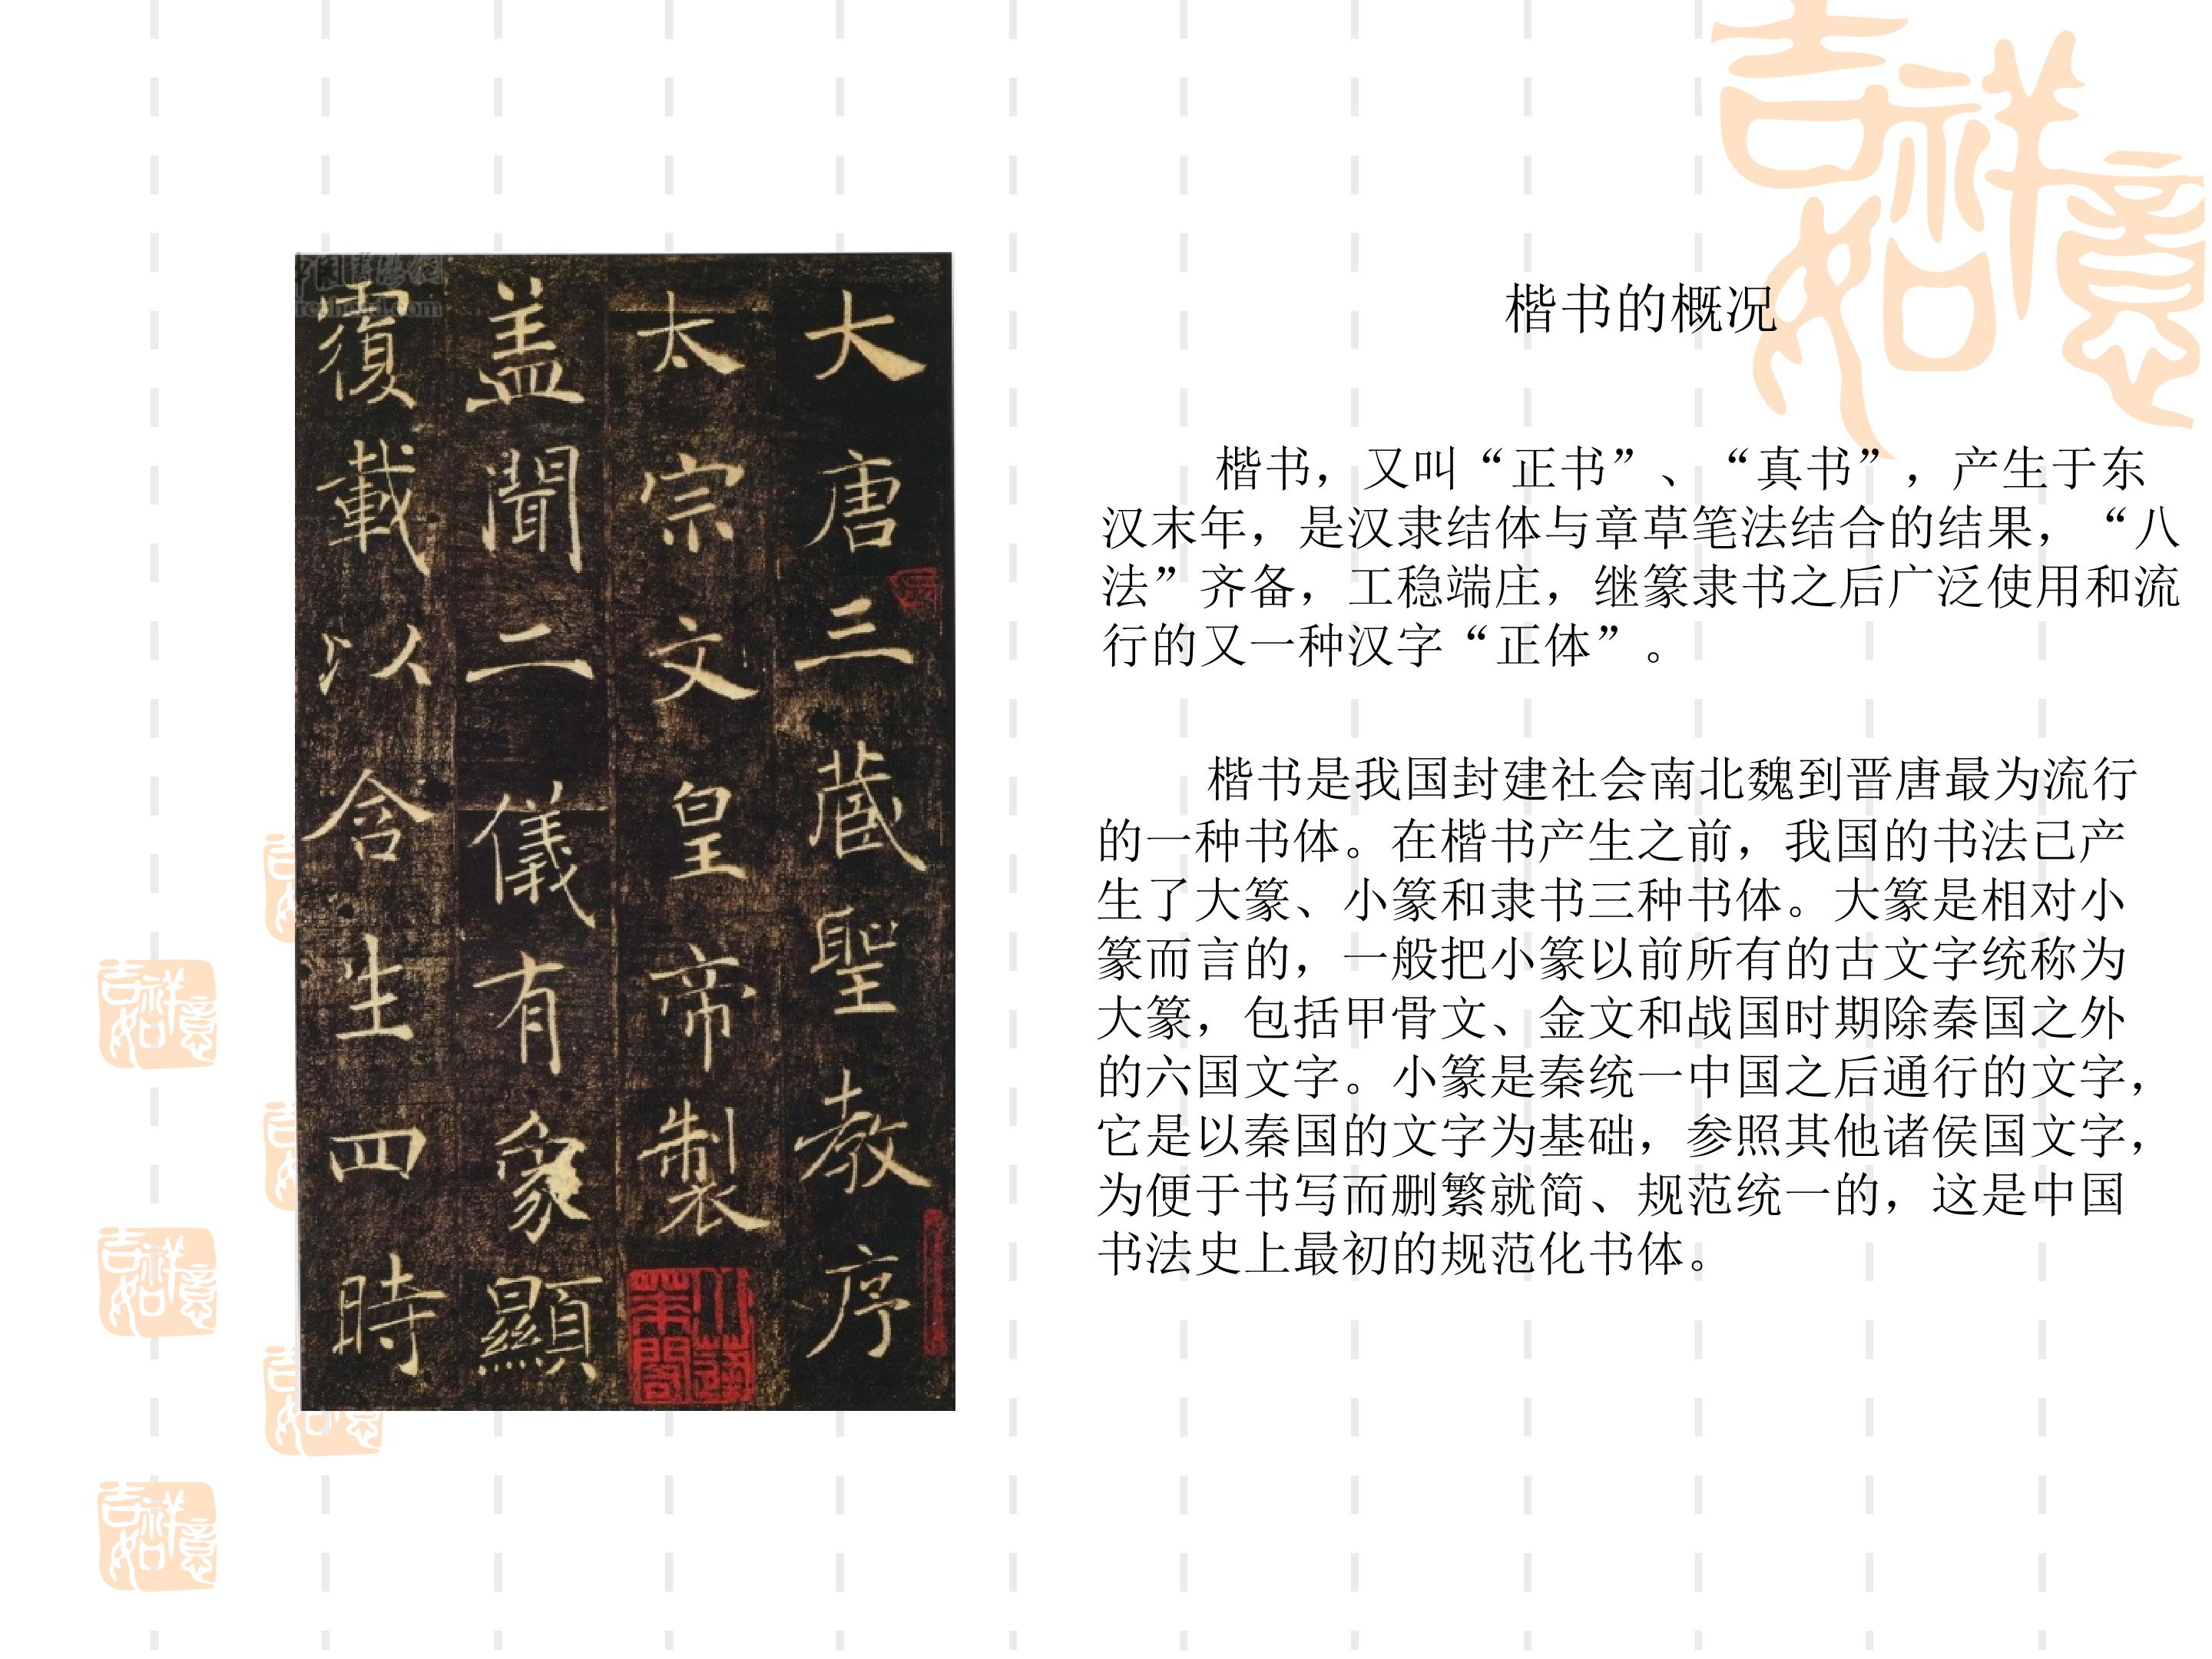 吉祥如意
楷书的概况
楷书，又叫“正书”、“真书”，产生于东
汉末年，是汉隶结体与章草笔法结合的结果，“八
法”齐备，工稳端庄，继篆隶书之后广泛使用和流
行的又一种汉字“正体”。
楷书是我国封建社会南北魏到晋唐最为流行
的一种书体。在楷书产生之前，我国的书法已产
生了大篆、小篆和隶书三种书体。大篆是相对小
篆而言的，一般把小篆以前所有的古文字统称为
大篆，包括甲骨文、金文和战国时期除秦国之外
的六国文字。小篆是秦统一中国之后通行的文字，
它是以秦国的文字为基础，参照其他诸侯国文字，
为便于书写而删繁就简、规范统一的，这是中国
书法史上最初的规范化书体。
大唐三藏聖教序
太宗文皇帝製
盖聞二儀有象顯
覆載以含生四時
吉祥如意
吉祥如意
吉祥如意